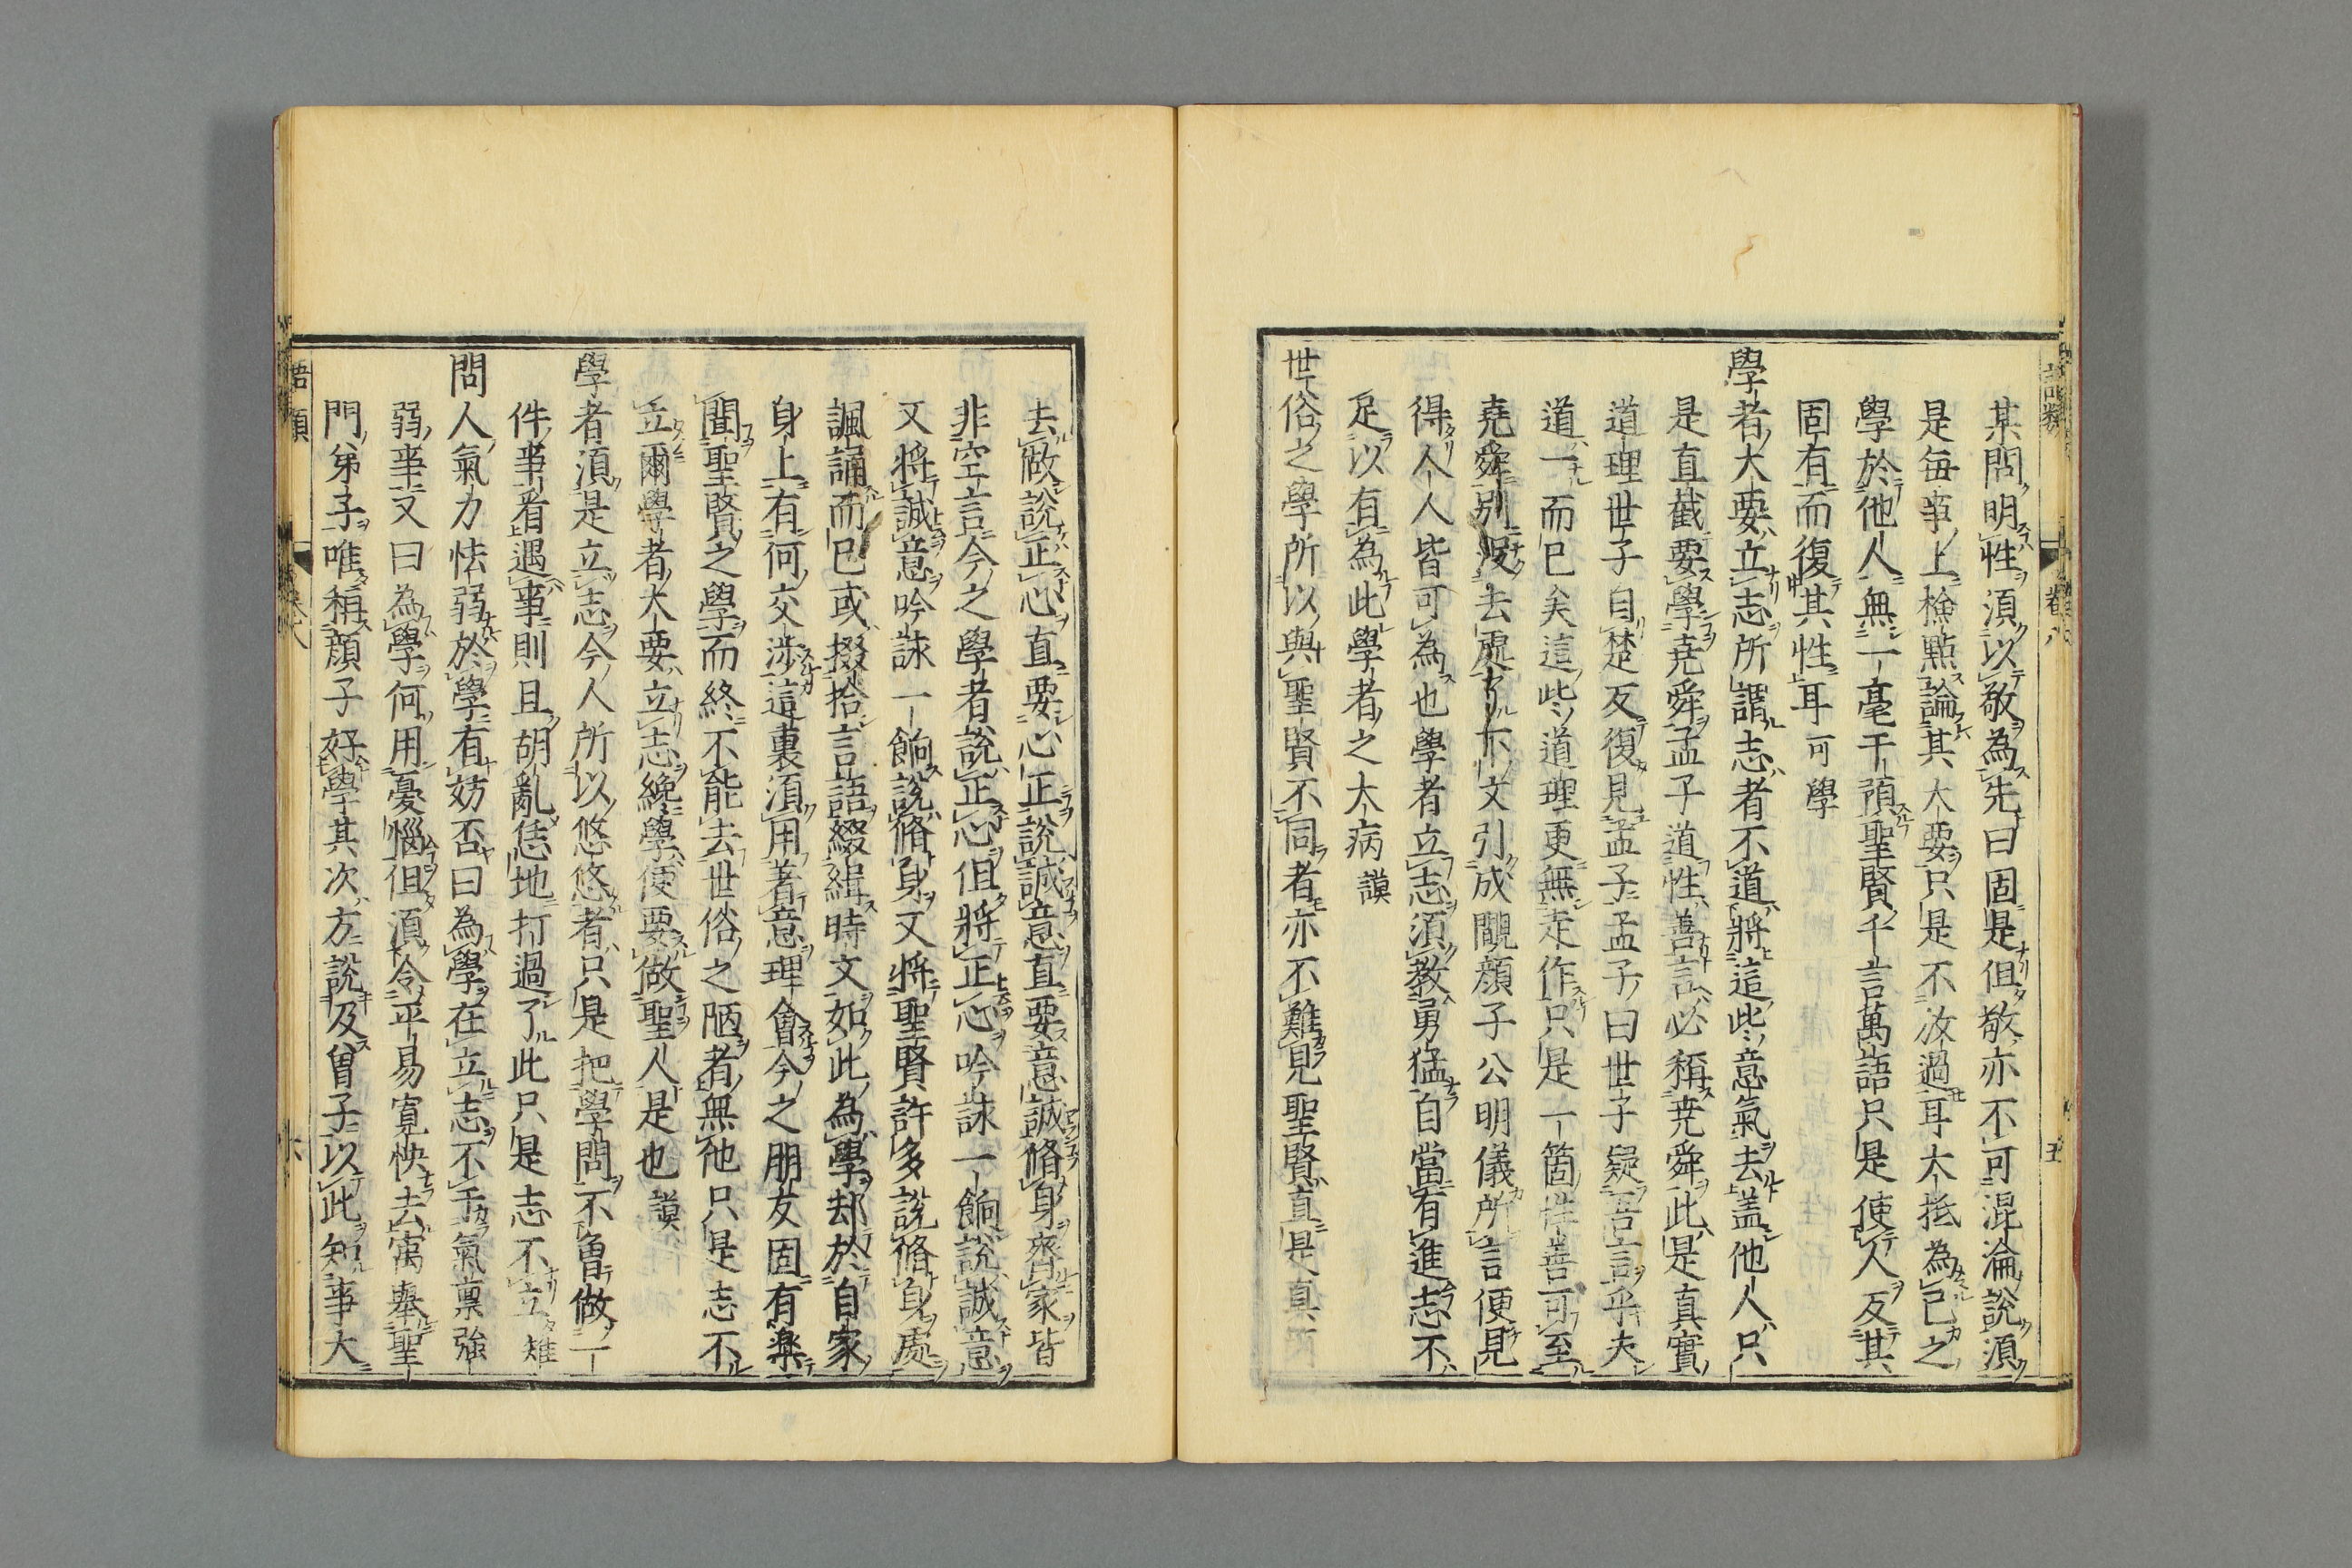 語類
卷八
五
某問明性須以敬為先曰固是但敬亦不可混淪說須
是每事上檢點論其大要只是不放過耳大抵為己之
學於他人無一毫干預聖賢千言萬語只是使人反其
固有而復其性耳可學
學者大要立志所謂志者不道將這些意氣去蓋他人只
是直截要學堯舜孟子道性善言必稱堯舜此是真實
道理世子自楚反復見孟子孟子曰世子疑吾言乎夫
道一而已矣這些道理更無走作只是一箇性善可至
堯舜別沒去處了下文引成覸顏子公明儀所言便見
得人人皆可為也學者立志須教勇猛自當有進志不
足以有為此學者之大病謨
世俗之學所以與聖賢不同者亦不難見聖賢直是真下
去做說正心直要心正說誠意直要意誠脩身齊家皆
非空言今之學者說正心但將正心吟詠一餉說誠意
又將誠意吟詠一餉說脩身又將聖賢許多說脩身處
諷誦而已或掇拾言語綴緝時文如此為學却於自家
身上有何交涉這裏須用著意理會今之朋友固有樂
聞聖賢之學而終不能去世俗之陋者無他只是志不
立爾學者大要立志纔學便要做聖人是也謨
學者須是立志今人所以悠悠者只是把學問不曾做一
件事看遇事則且胡亂恁地打過了此只是志不立雉
問人氣力怯弱於學有妨否曰為學在立志不干氣稟強
弱事又曰為學何用憂惱但須令平易寬快去寓舉聖
門弟子唯稱顏子好學其次方說及曾子以此知事大
語類
卷八
六